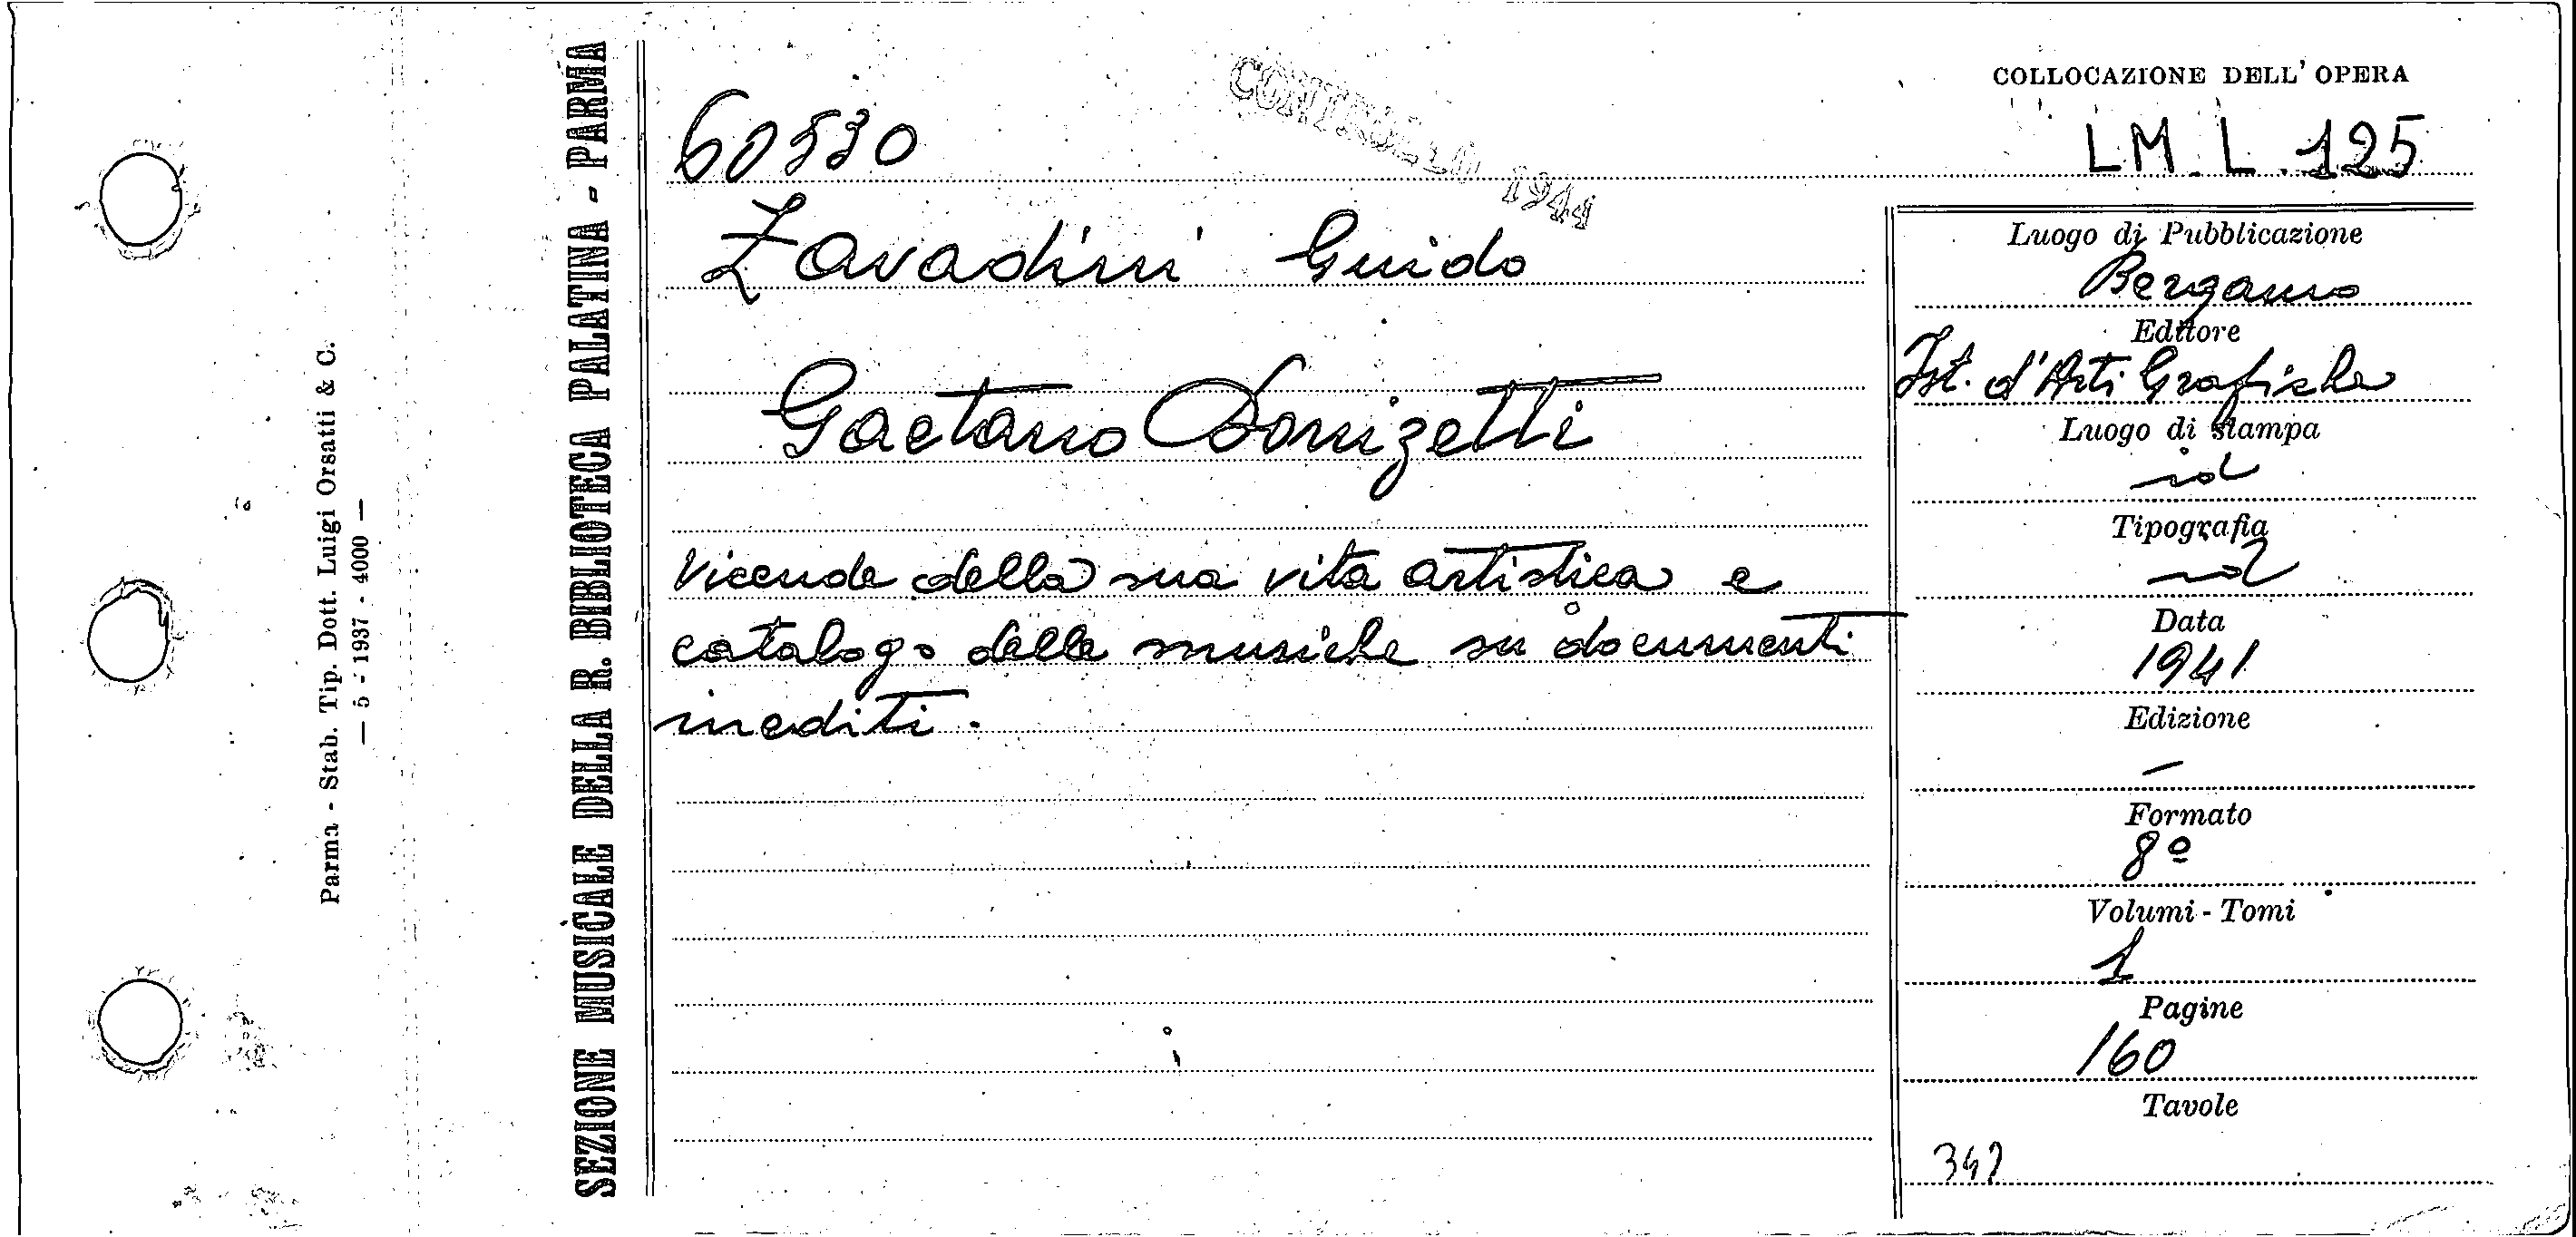 Parma - Stab. Tip. Dott. Luigi Orsatti & C.
— 5 - 1937 - 4000 —
SEZIONE MUSICALE DELLA R. BIBLIOTECA PALATINA - PARMA
60530
CONTROLLO 1944
COLLOCAZIONE DELL'OPERA
LM. L. 125
Zavadini Guido
Gaetano Donizetti
Vicende della sua vita artistica e
catalogo delle musiche su documenti
inediti.
Luogo di Pubblicazione
Bergamo
Editore
Ist. d'Arti Grafiche
Luogo di stampa
id
Tipografia
id
Data
1941
Edizione
—
Formato
8º
Volumi - Tomi
1
Pagine
160
Tavole